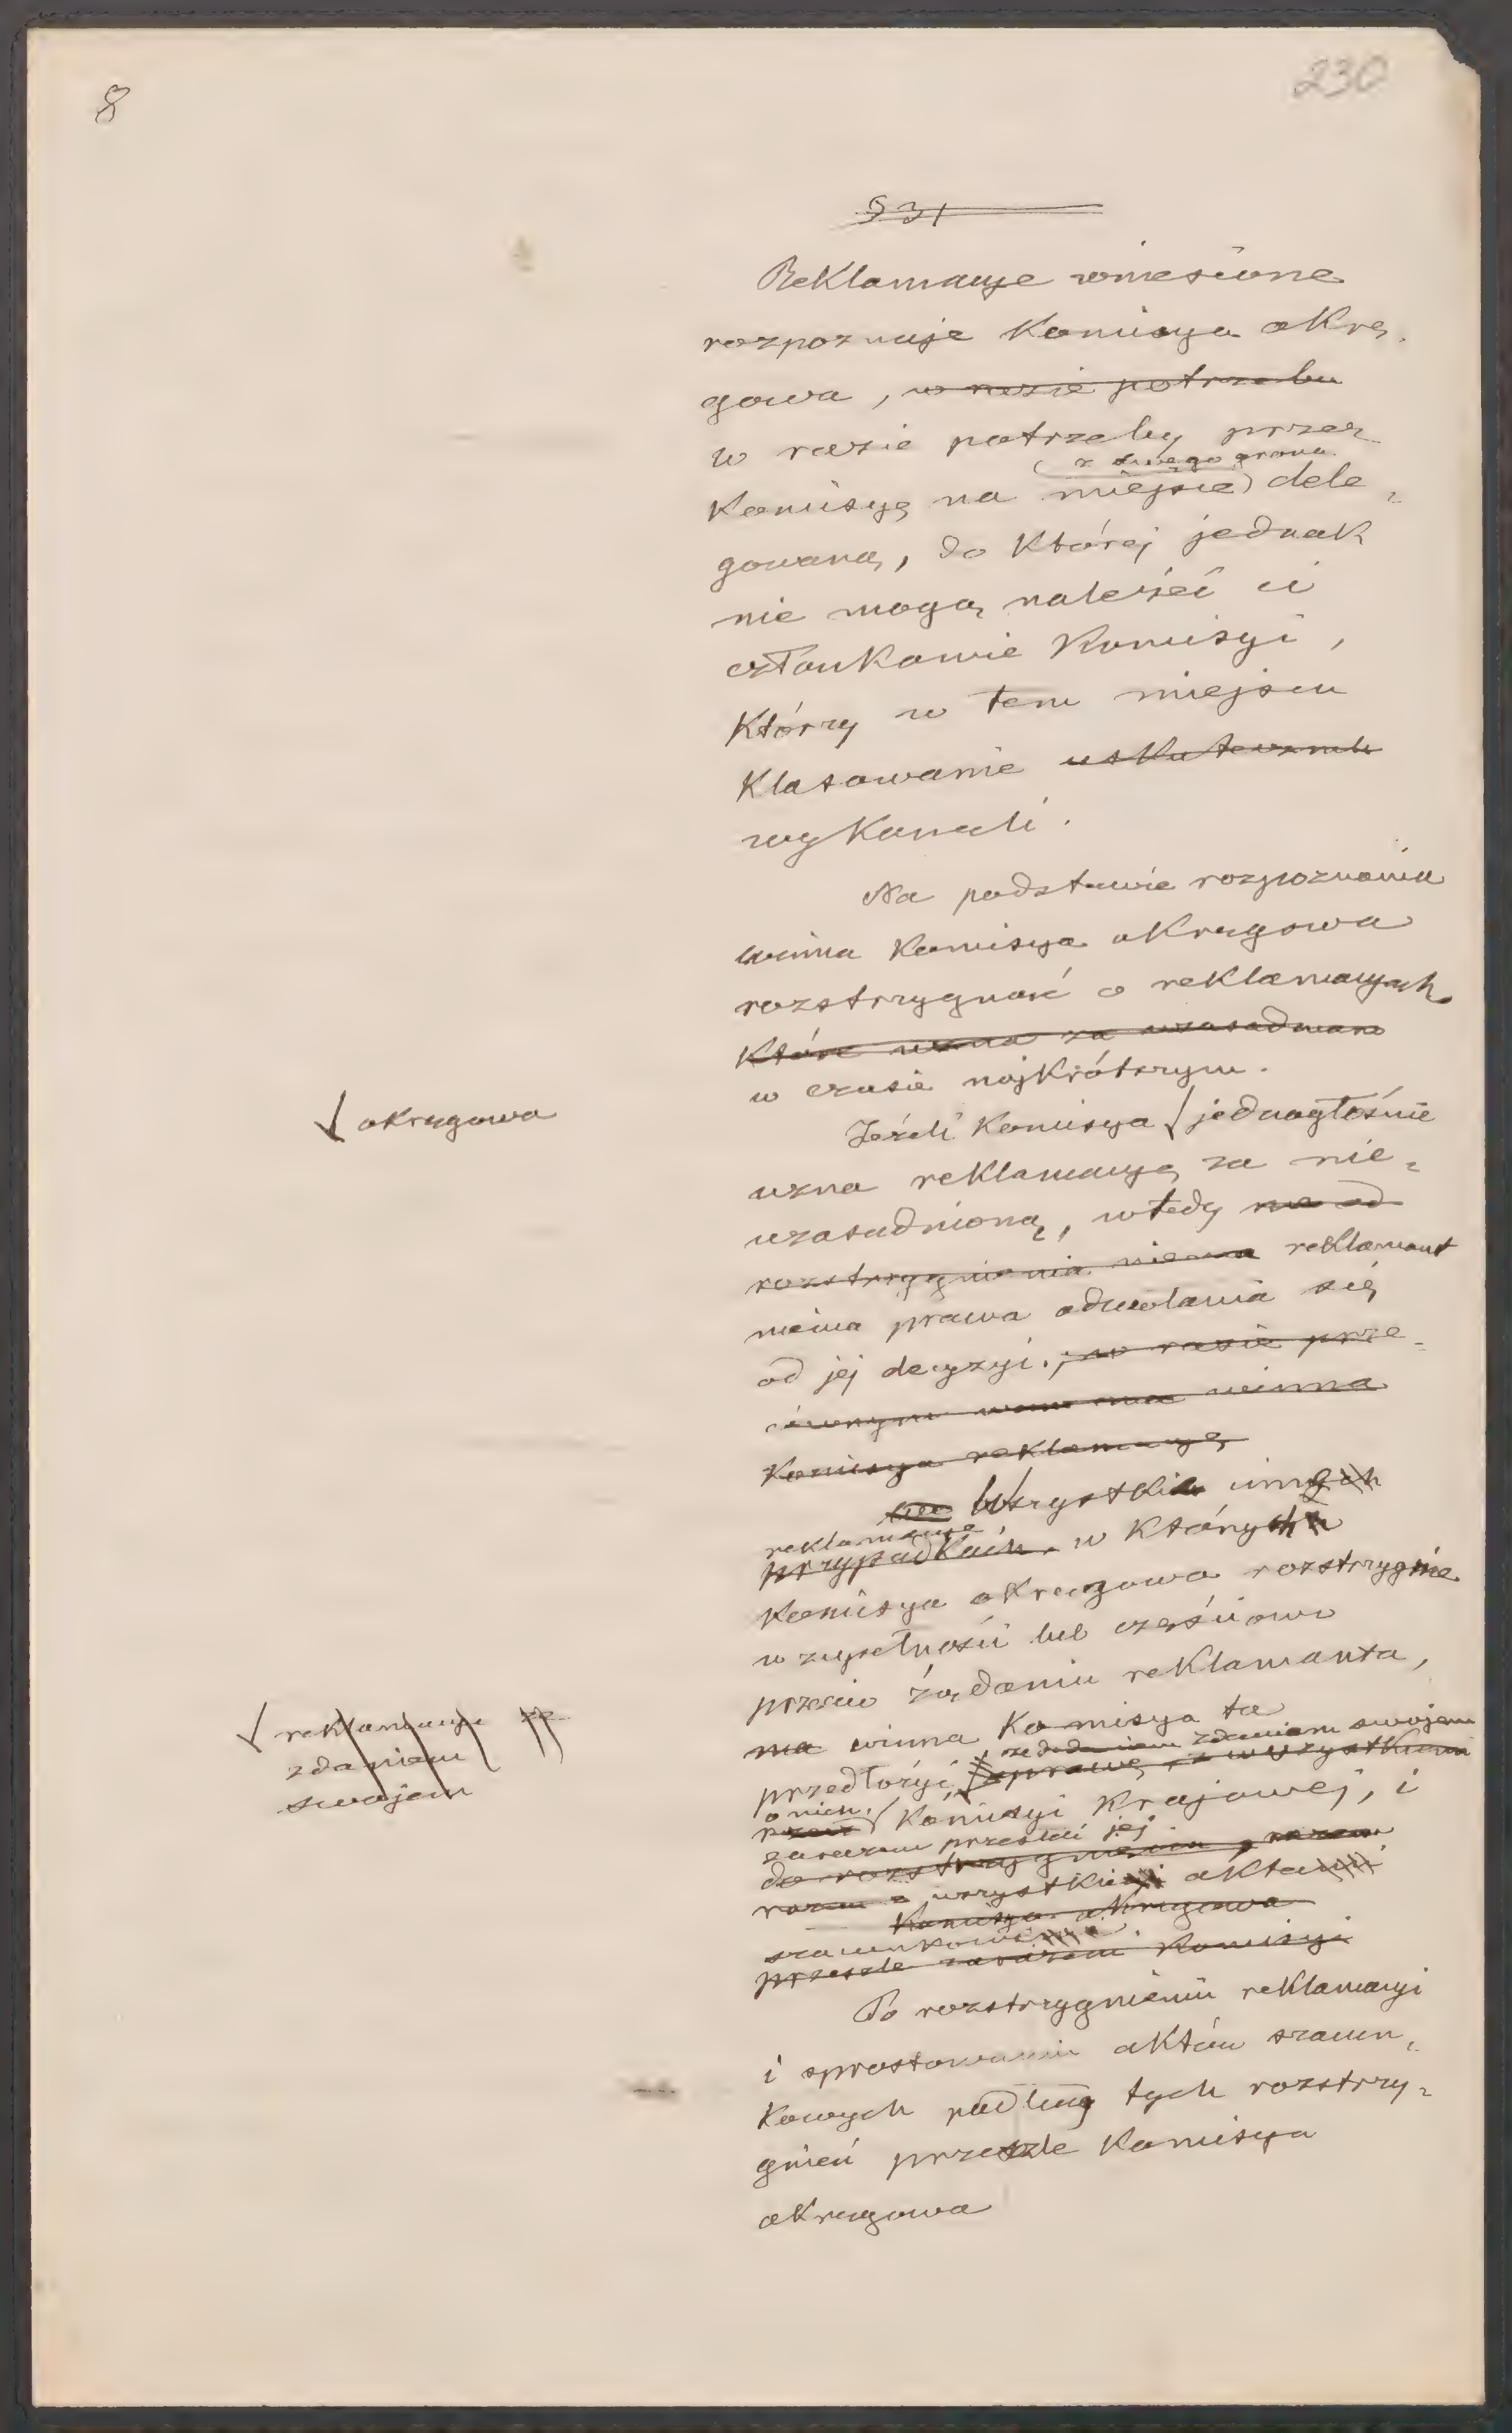 8
230
§ 31
Reklamacye wniesione
rozpoznaje Komisya okrę-
gowa, w razie potrzebu
w razie potrzeby przez
z swego grona
Komisyę na miejsce dele-
gowaną, do której jednak
nie mogą należeć ci
członkowie Komisyi,
którzy w tem miejscu
klasowanie uskutecznili
wykonali.
Na podstawie rozpoznania
winna Komisya okręgowa
rozstrzygnąć o reklamacyach
które uzna za uzasadnione
w czasie najkrótszym.
√ okręgowa
Jeżeli Komisya √ jednogłośnie
uzna reklamacyę za nie-
uzasadnioną, wtedy na od
rozstrzygnienia niema reklamant
niema prawa odwołania się
od jej decyzyi. ; w razie prze-
ciwnym winna
Komisya reklamacyę
Wszystkie innych
reklamacye
przypadkach w których
Komisya okręgowa rozstrzygnie
w zupełności lub częściowo
przeciw żądaniu reklamanta,
ma winna Komisya ta
√ reklamacye ze
zdaniem
swojem
z dodaniem zdaniem swojem
przedłożyć sprawę, z wszystkiemi
o nich
Komisyi Krajowej, i
zarazem przesłać jej
do rozstrzygnienia, razem
razem z wszystkiemi aktami
Komisya okręgowa
szacunkowemi
prześle zarazem Komisyi
Po rozstrzygnieniu reklamacyi
i sprostowaniu aktów szacun-
kowych podług tych rozstrzy-
gnień prześle Komisya
okręgowa